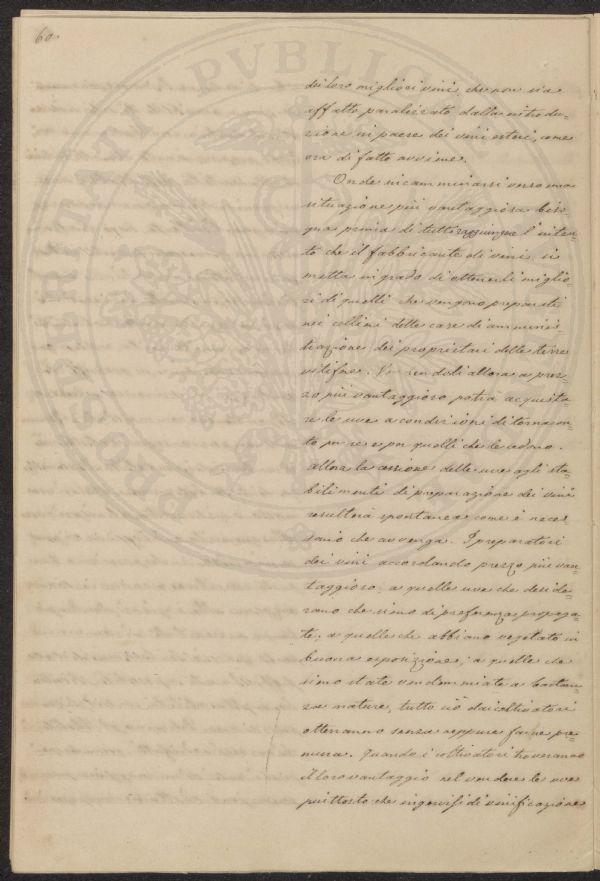 60.
dei loro migliori vini che non sia
affatto paralizzato dalla introdu-
zione in paese dei vini esteri, come
ora di fatto avviene.
Onde incamminarsi verso una
situazione più vantaggiosa biso-
gna prima di tutto raggiungere l'inten-
to che il fabbricante di vini si
metta in grado di ottenerli miglio
ri di quelli che vengono preparati
nei cellieri delle case di amminis-
trazione dei proprietari delle terre
vitifere. Vendendoli allora a prez-
zo più vantaggioso potrà acquista-
re le uve a condizioni di tornacon-
to per se e per quelli che le cedono.
Allora la cessione delle uve agli sta-
bilimenti di preparazione dei vini
resulterà spontanea come è neces
sario che avvenga. I preparatori
dei vini accordando prezzo più van-
taggioso; a quelle uve che deside-
rano che sieno di preferenza propaga-
te; a quelle che abbiano vegetato in
buona esposizione; a quelle che
sieno state vendemmiate a bastan-
za mature, tutto ciò dai coltivatori
otterranno senza neppure farne pre-
mura. Quando i coltivatori troveranno
il loro vantaggio nel vendere le uve
piuttosto che ingerirsi di vinificazione
PVBLIC